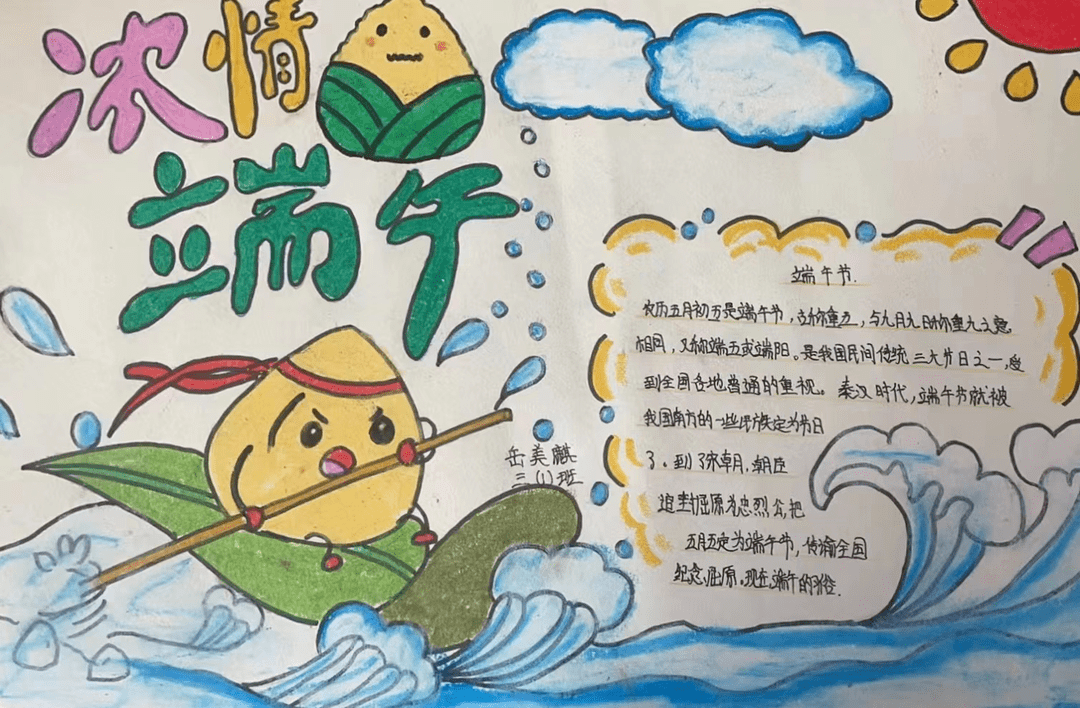 浓情
端午
岳美麒
三(1)班
端午节.
农历五月初五是端午节，亦称重五，与九月九日称重九之意
相同，又称端五或端阳。是我国民间传统三大节日之一，受
到全国各地普通的重视。秦汉时代，端午节就被
我国南方的一些民族定为节日
了。到了宋朝，朝廷
追封屈原为忠烈公，把
五月五定为端午节，传谕全国
纪念屈原。现在端午的